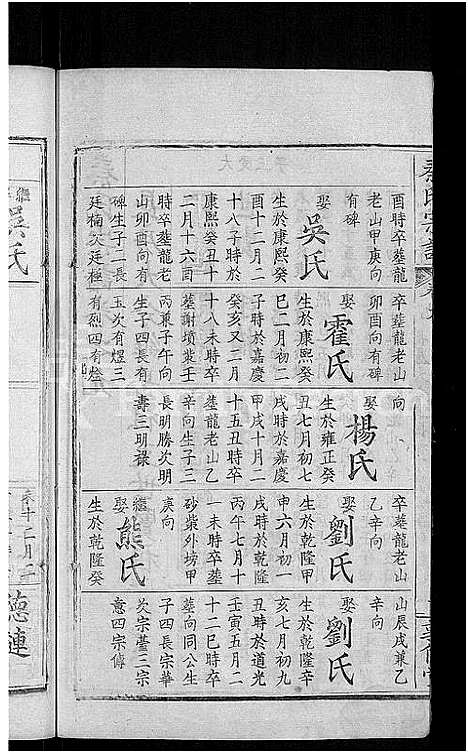 酉時卒塟龍
老山甲庚向
有碑
娶吳氏
生於康熙癸
酉十二月二
十八子時於
康熙癸丑十
二月十六酉
時卒塟龍老
山卯酉向有
碑生子二長
廷楠次廷極
卒塟龍老山
卯酉向有碑
娶霍氏
生於康熙癸
巳二月初二
子時於嘉慶
癸亥又二月
十八未時卒
塟謝墳漿壬
丙兼子午向
生子四長有
玉次有煜三
有烈四有燈
向
娶楊氏
生於雍正癸
丑七月初七
戌時於嘉慶
甲戌十月二
十五丑時卒
塟龍老山乙
辛向生子三
長明勝次明
壽三明祿
卒塟龍老山
乙辛向
娶劉氏
生於乾隆甲
申六月初一
戌時於道光
丙午七月十
一未時卒塟
砂柴外坊甲
庚向
繼娶熊氏
生於乾隆癸
山辰戌兼乙
辛向
娶劉氏
生於乾隆辛
亥七月初九
丑時於道光
壬寅五月二
十二巳時卒
塟向同公生
子四長宗華
次宗䓁三宗
意四宗脩
吳氏
德連